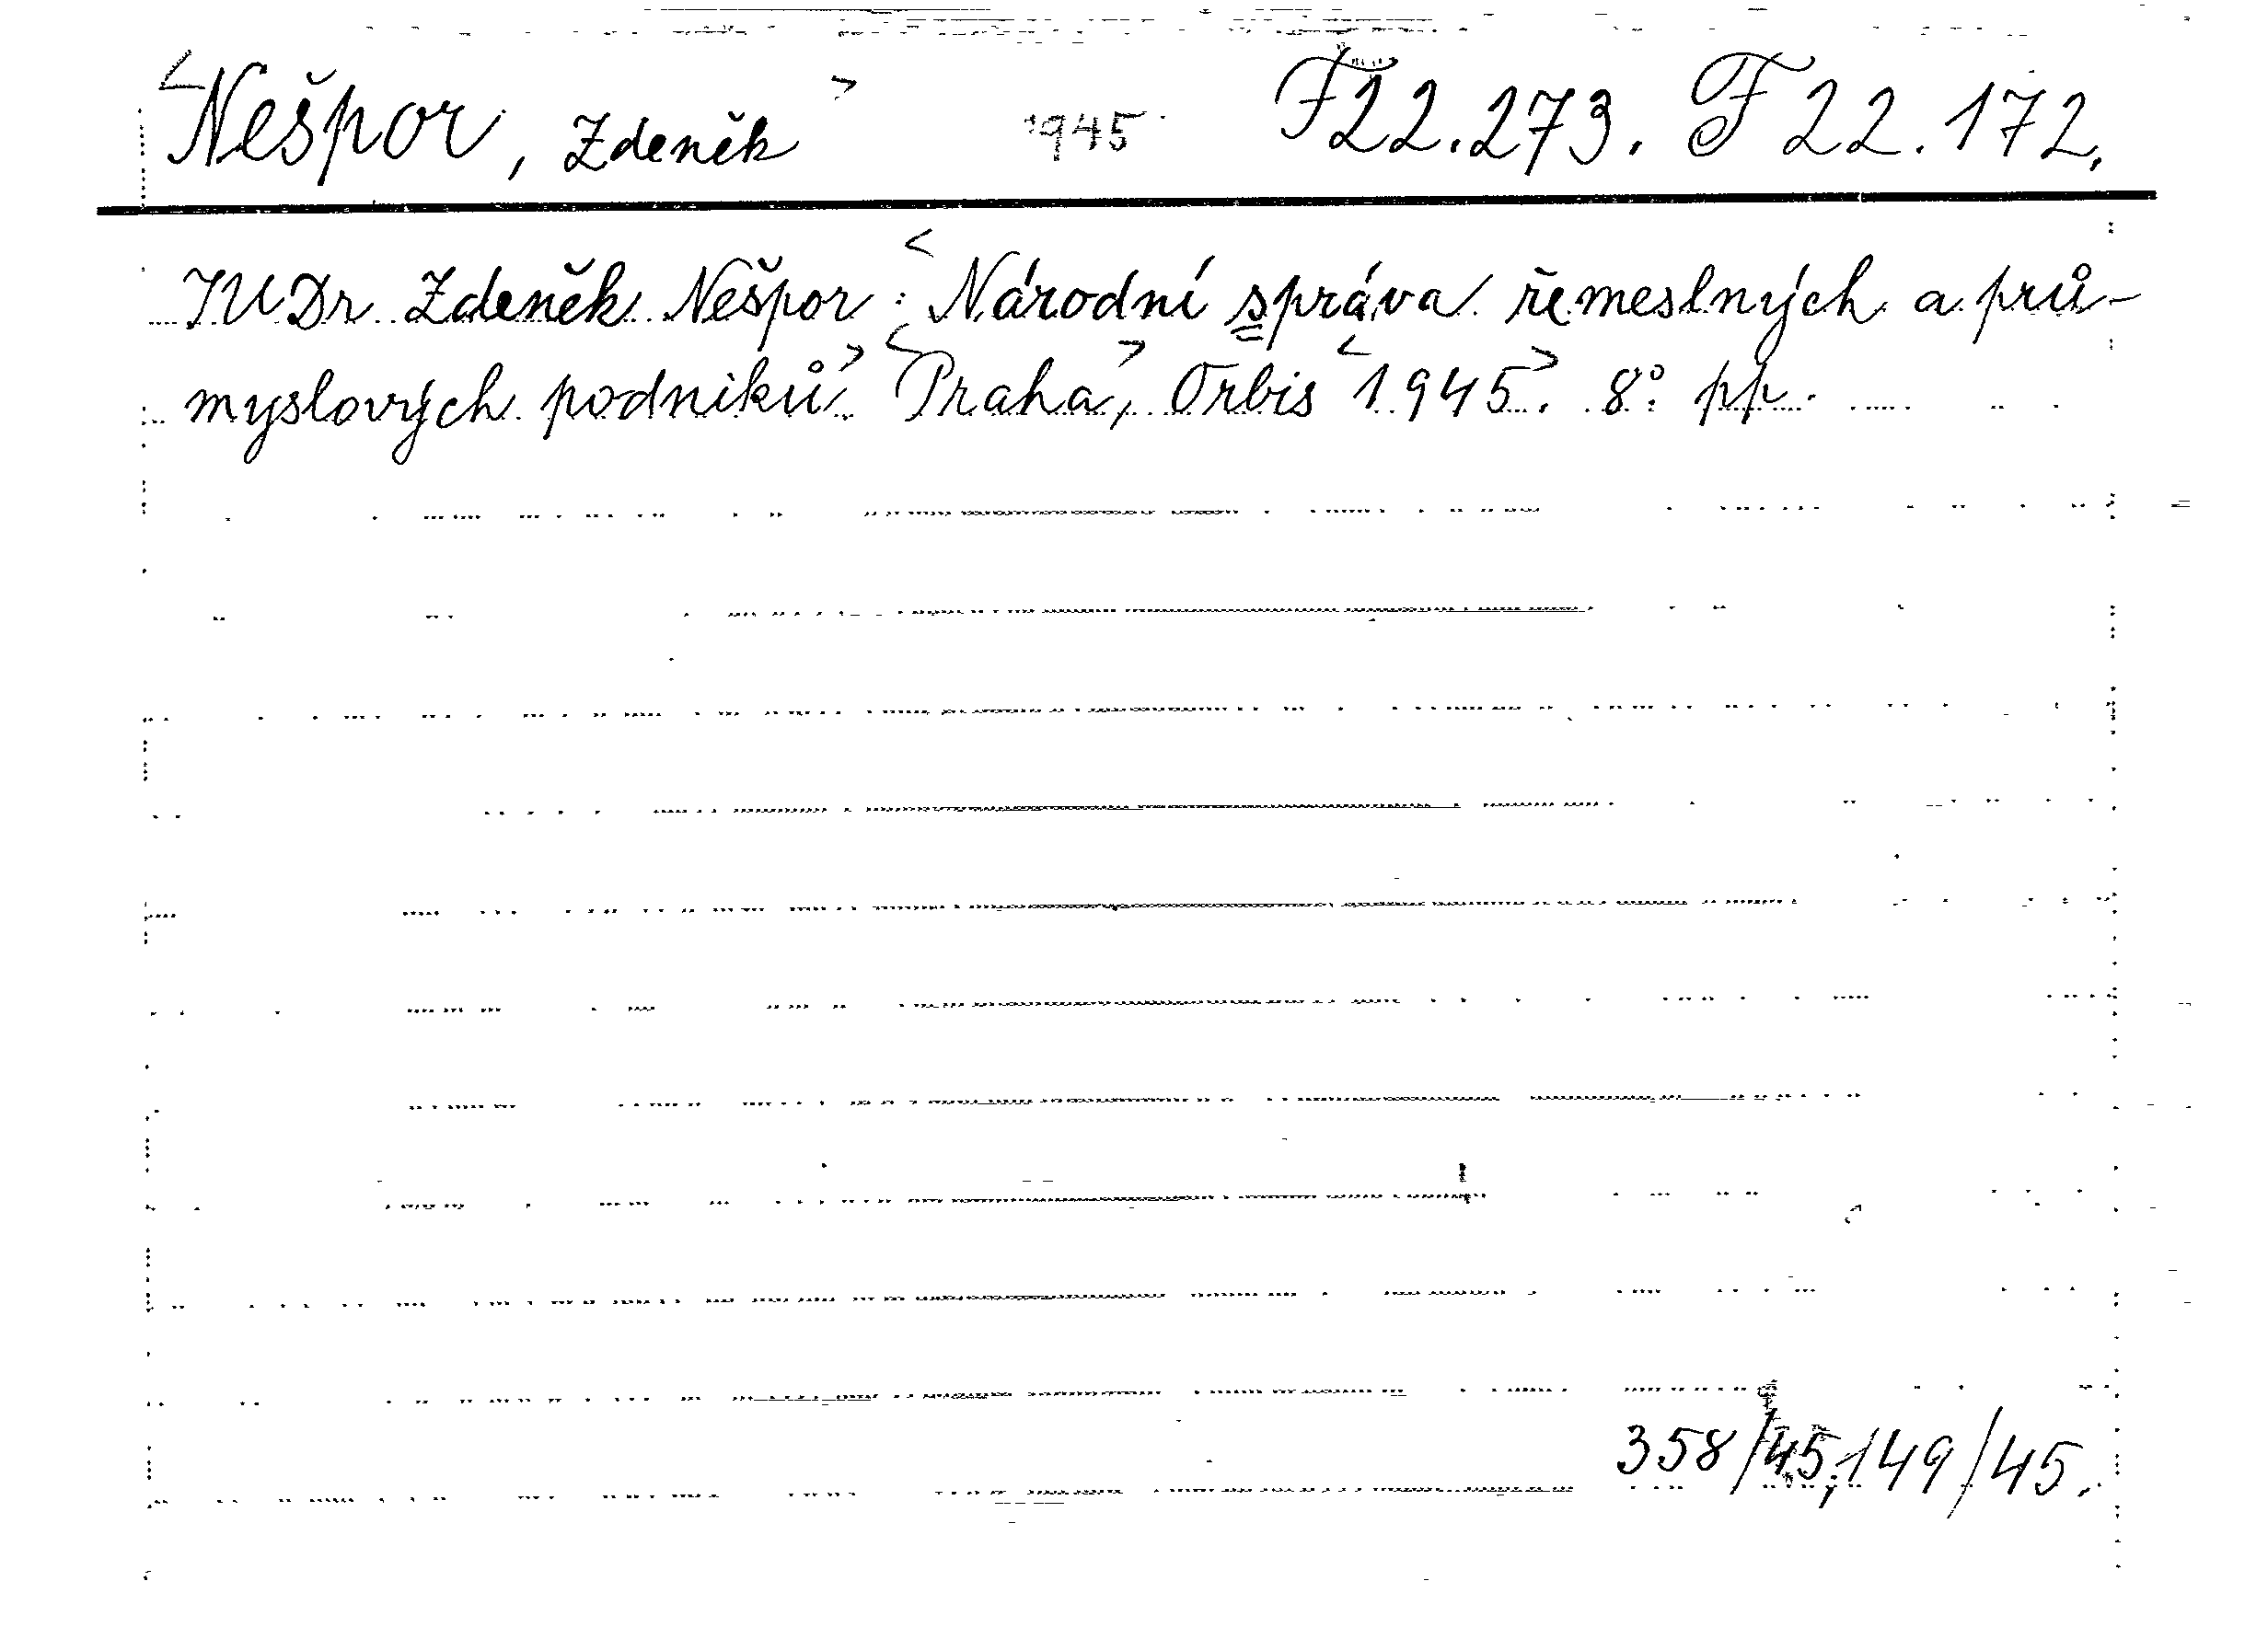 <Nešpor, Zdeněk> 1945 F 22.273. F 22.172.
JUDr Zdeněk Nešpor: <Národní správa řemeslných a prů-
myslových podniků>. <Praha>, Orbis <1945>. 8°. pp.
358/45, 149/45.